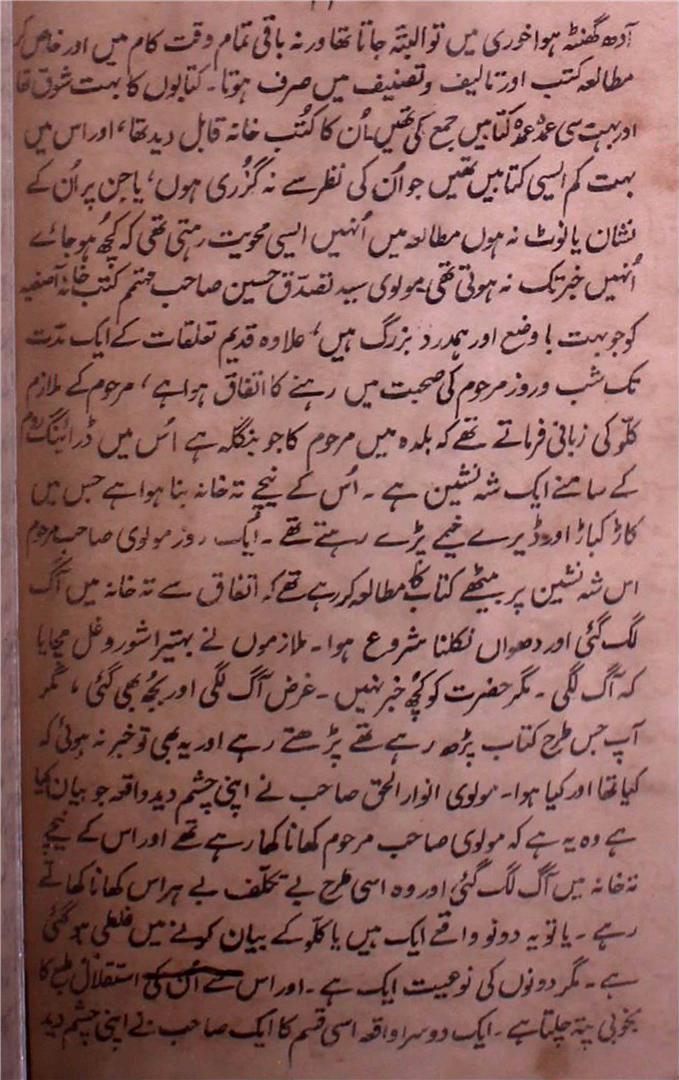 آدھ گھنٹہ ہوا خوری میں تو البتہ جاتا تھا ورنہ باقی تمام وقت کام میں اور خاص کر
مطالعہ کتب اور تالیف و تصنیف میں صرف ہوتا۔ کتابوں کا بہت شوق تھا
اور بہت سی عمدہ عمدہ کتابیں جمع کی تھیں۔ اُن کا کُتب خانہ قابل دید تھا، اور اس میں
بہت کم ایسی کتابیں تھیں جو اُن کی نظر سے نہ گزری ہوں، یا جن پر اُن کے
نشان یا نوٹ نہ ہوں مطالعہ میں اُنہیں ایسی محویت رہتی تھی کہ کچھ ہو جائے
اُنہیں خبر تک نہ ہوتی تھی۔ مولوی سید تصدّق حسین صاحب مہتمم کتب خانۂ آصفیہ
کو جو بہت با وضع اور ہمدرد بزرگ ہیں، علاوہ قدیم تعلقات کے ایک مدّت
تک شب و روز مرحوم کی صحبت میں رہنے کا اتفاق ہوا ہے، مرحوم کے ملازم
کلّو کی زبانی فرماتے تھے کہ بلدہ میں مرحوم کا جو بنگلہ ہے اُس میں ڈرائنگ روم
کے سامنے ایک شہ نشین ہے۔ اُس کے نیچے تہ خانہ بنا ہوا ہے جس میں
کاڑ کباڑ اور ڈیرے خیمے پڑے رہتے تھے۔ ایک روز مولوی صاحب مرحوم
اس شہ نشین پر بیٹھے کتاب کا مطالعہ کر رہے تھے کہ اتفاق سے تہ خانہ میں آگ
لگ گئی اور دھواں نکلنا شروع ہوا۔ ملازموں نے بہتیرا شور و غل مچایا
کہ آگ لگی۔ مگر حضرت کو کچھ خبر نہیں۔ غرض آگ لگی اور بجھ بھی گئی، مگر
آپ جس طرح کتاب پڑھ رہے تھے پڑھتے رہے اور یہ بھی تو خبر نہ ہوئی کہ
کیا تھا اور کیا ہوا۔ مولوی انوار الحق صاحب نے اپنی چشم دید واقعہ جو بیان کیا
ہے وہ یہ ہے کہ مولوی صاحب مرحوم کھانا کھا رہے تھے اور اس کے نیچے
تہ خانہ میں آگ لگ گئی اور وہ اسی طرح بے تکلّف بے ہراس کھانا کھاتے
رہے۔ یا تو یہ دونو واقعے ایک ہیں یا کلّو کے بیان کرنے میں غلطی ہو گئی
ہے۔ مگر دونوں کی نوعیت ایک ہے۔ اور اس سے ان کی استقلال طبع کا
بخوبی پتہ چلتا ہے۔ ایک دوسرا واقعہ اسی قسم کا ایک صاحب نے اپنی چشم دید